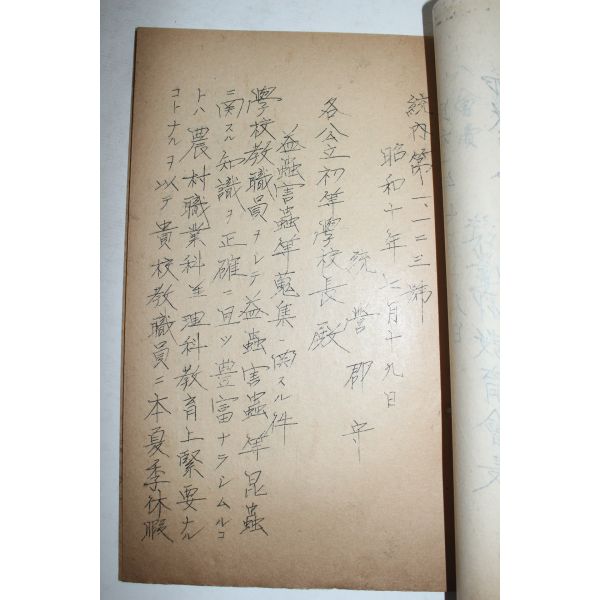 統內第一、一二三號
昭和十年七月十九日
統營郡守
各公立初等學校長殿
益蟲害蟲等蒐集ニ関スル件
學校教職員ヲシテ益蟲害蟲等昆蟲
ニ関スル知識ヲ正確ニ且ツ豊富ナラシムルコ
トハ農村職業科並理科教育上緊要ナル
コトナルヲ以テ貴校教職員ニ本夏季休暇
教育會長